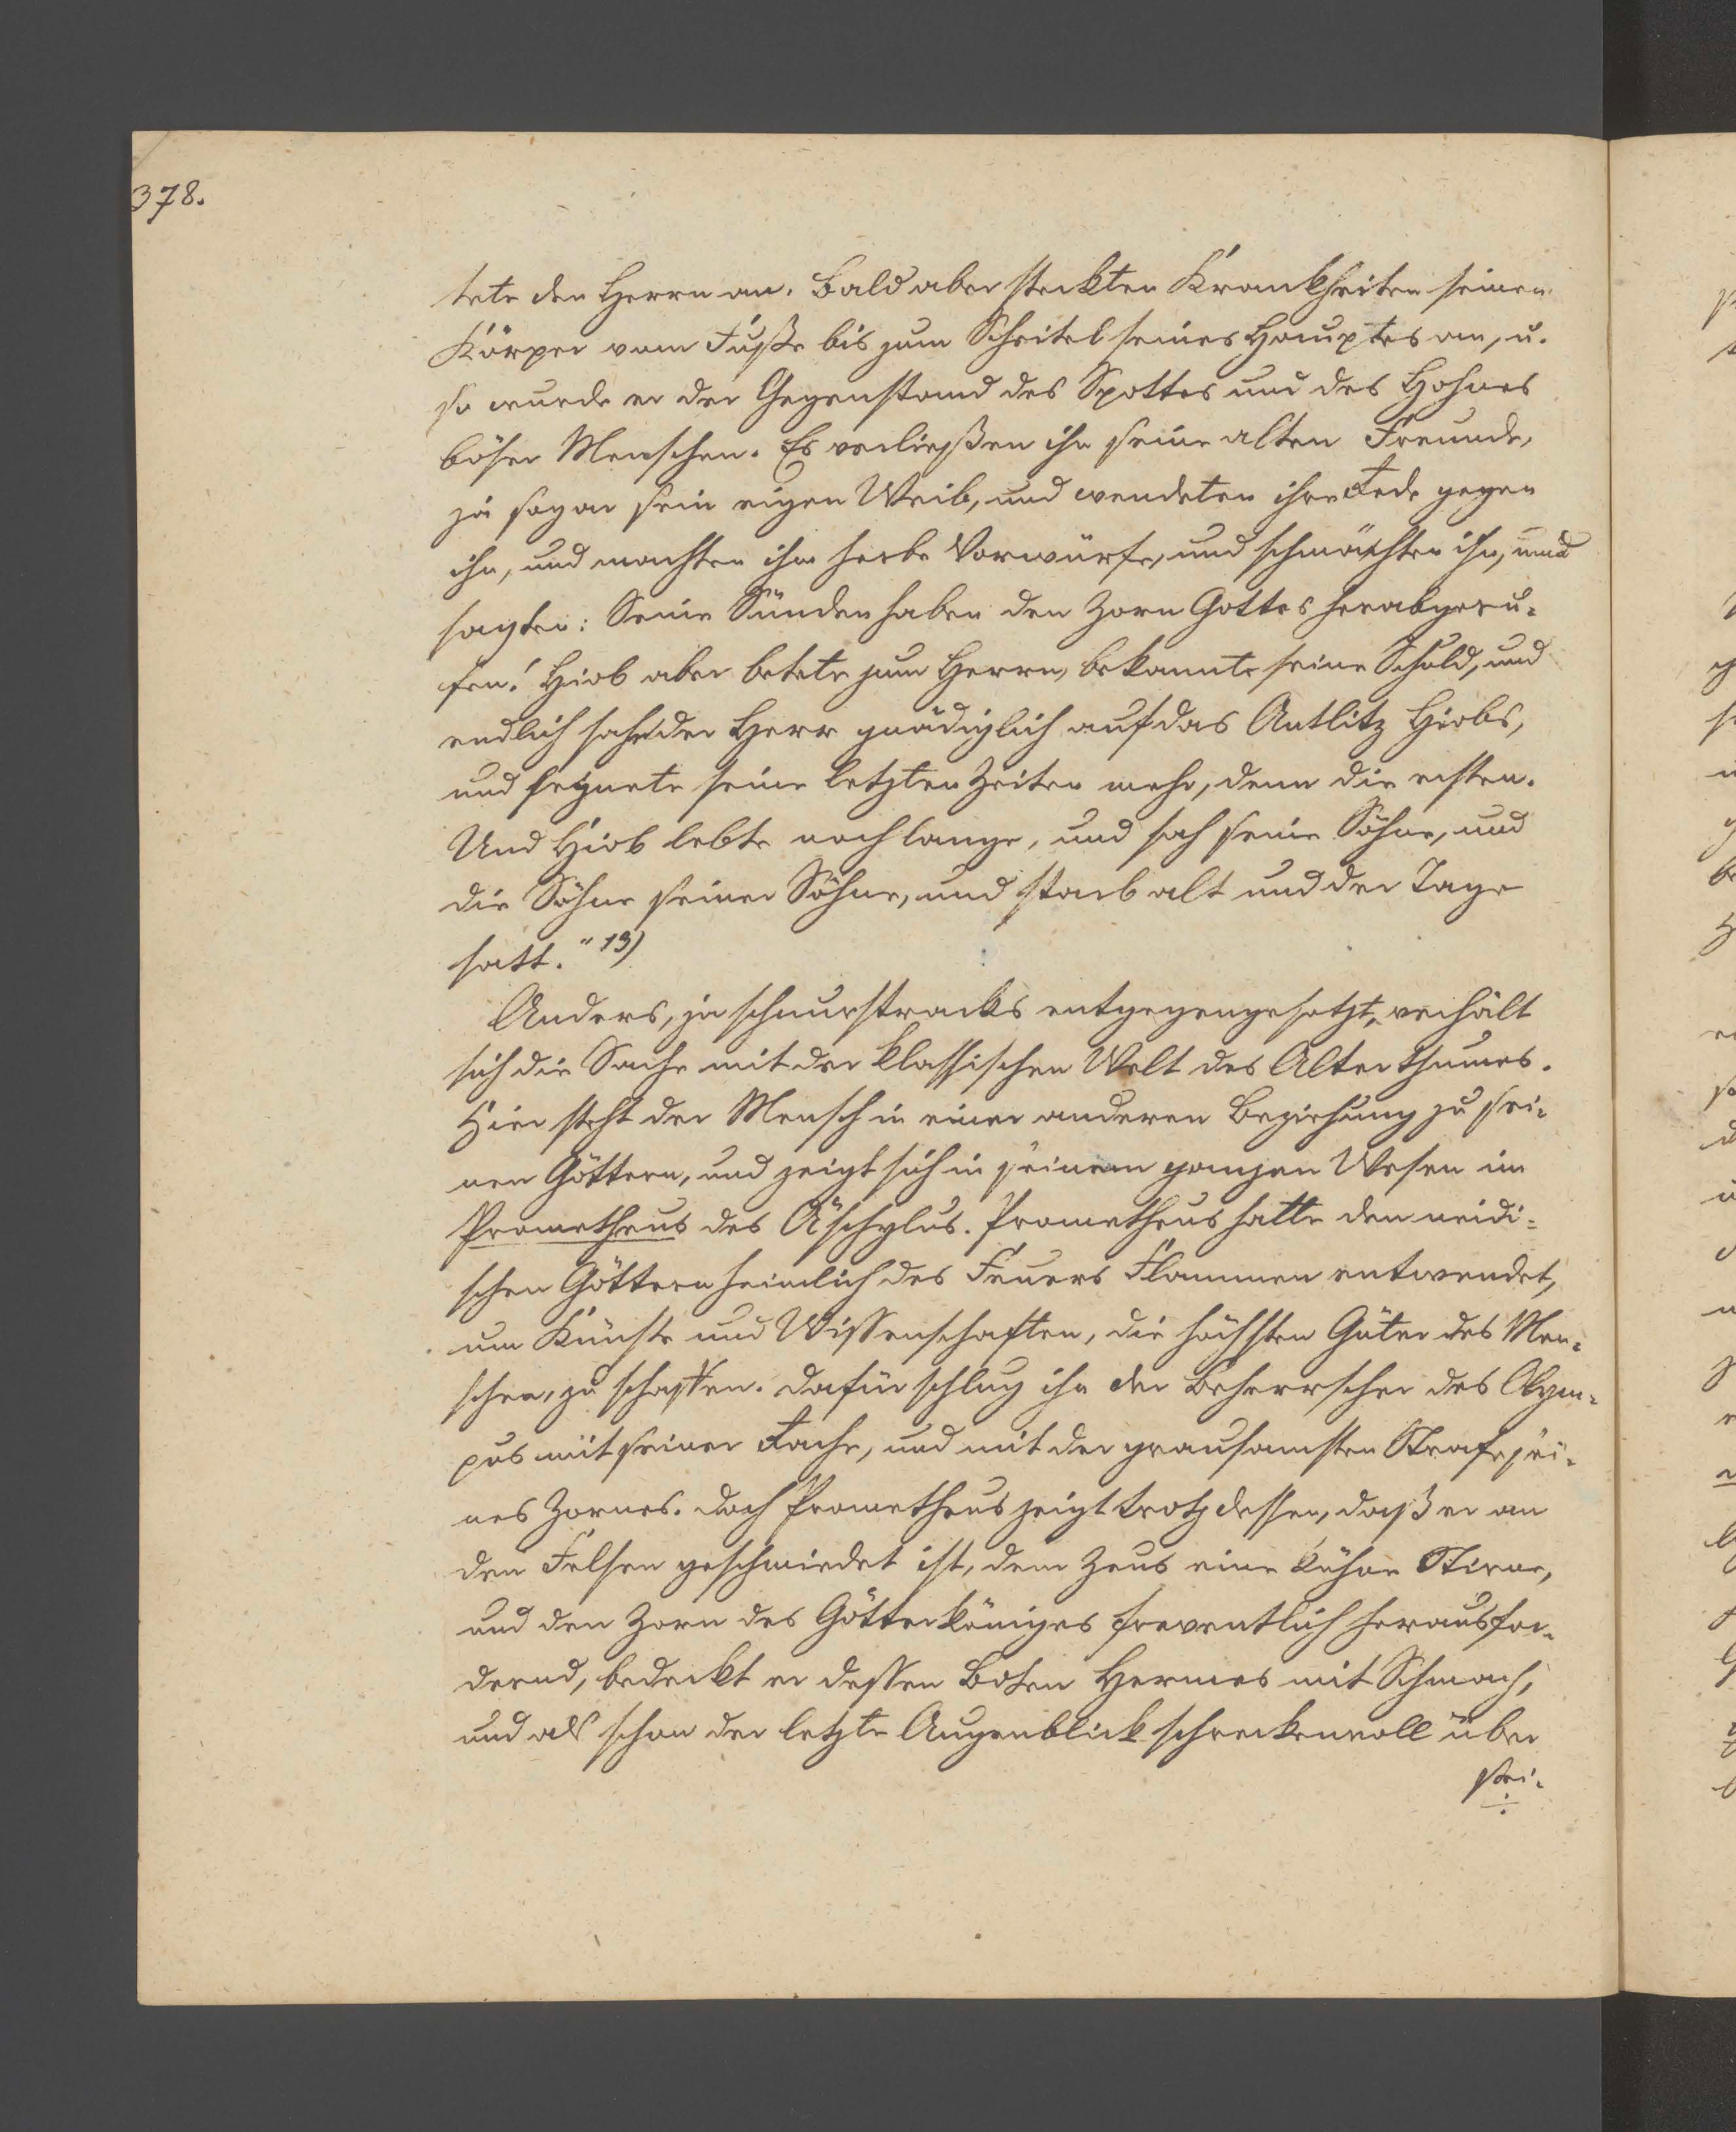 378.
tete den Herrn an. Bald aber steckten Krankheiten seinen
Körper vom Fuße bis zum Scheitel seines Hauptes an, u.
so wurde er der Gegenstand des Spottes und des Hohnes
böser Menschen. Es verließen ihn seine alten Freunde,
ja sogar sein eigen Weib, und wendeten ihre Rede gegen
ihn, und machten ihm herbe Vorwürfe, und schmähten ihn, und
sagten: Seine Sünden haben den Zorn Gottes herabgeru-
fen! Hiob aber betete zum Herrn, bekannte seine Schuld, und
endlich sah der Herr gnädiglich auf das Antlitz Hiobs,
und segnete seine letzten Zeiten mehr, denn die ersten.
Und Hiob lebte noch lange, und sah seine Söhne, und
die Söhne seiner Söhne, und starb alt und der Tage
satt." 13)
Anders, ja schnurstracks entgegengesetzt, verhält
sich die Sache mit der klassischen Welt des Alterthumes.
Hier steht der Mensch in einer anderen Beziehung zu sei-
nen Göttern, und zeigt sich in seinem ganzen Wesen im
Prometheus des Äschylus. Prometheus hatte den neidi-
schen Göttern heimlich des Feuers Flammen entwendet,
um Künste und Wissenschaften, die höchsten Güter des Men-
schen, zu schaffen. Dafür schlug ihn der Beherrscher des Olym-
pus mit seiner Rache, und mit der grausamsten Strafe sei-
nes Zornes. Doch Prometheus zeigt trotz dessen, daß er an
den Felsen geschmiedet ist, dem Zeus eine kühne Stirne,
und den Zorn des Götterköniges freventlich herausfor-
dernd, bedeckt er dessen Boten Hermes mit Schmach,
und als schon der letzte Augenblick schreckenvoll über
sei-